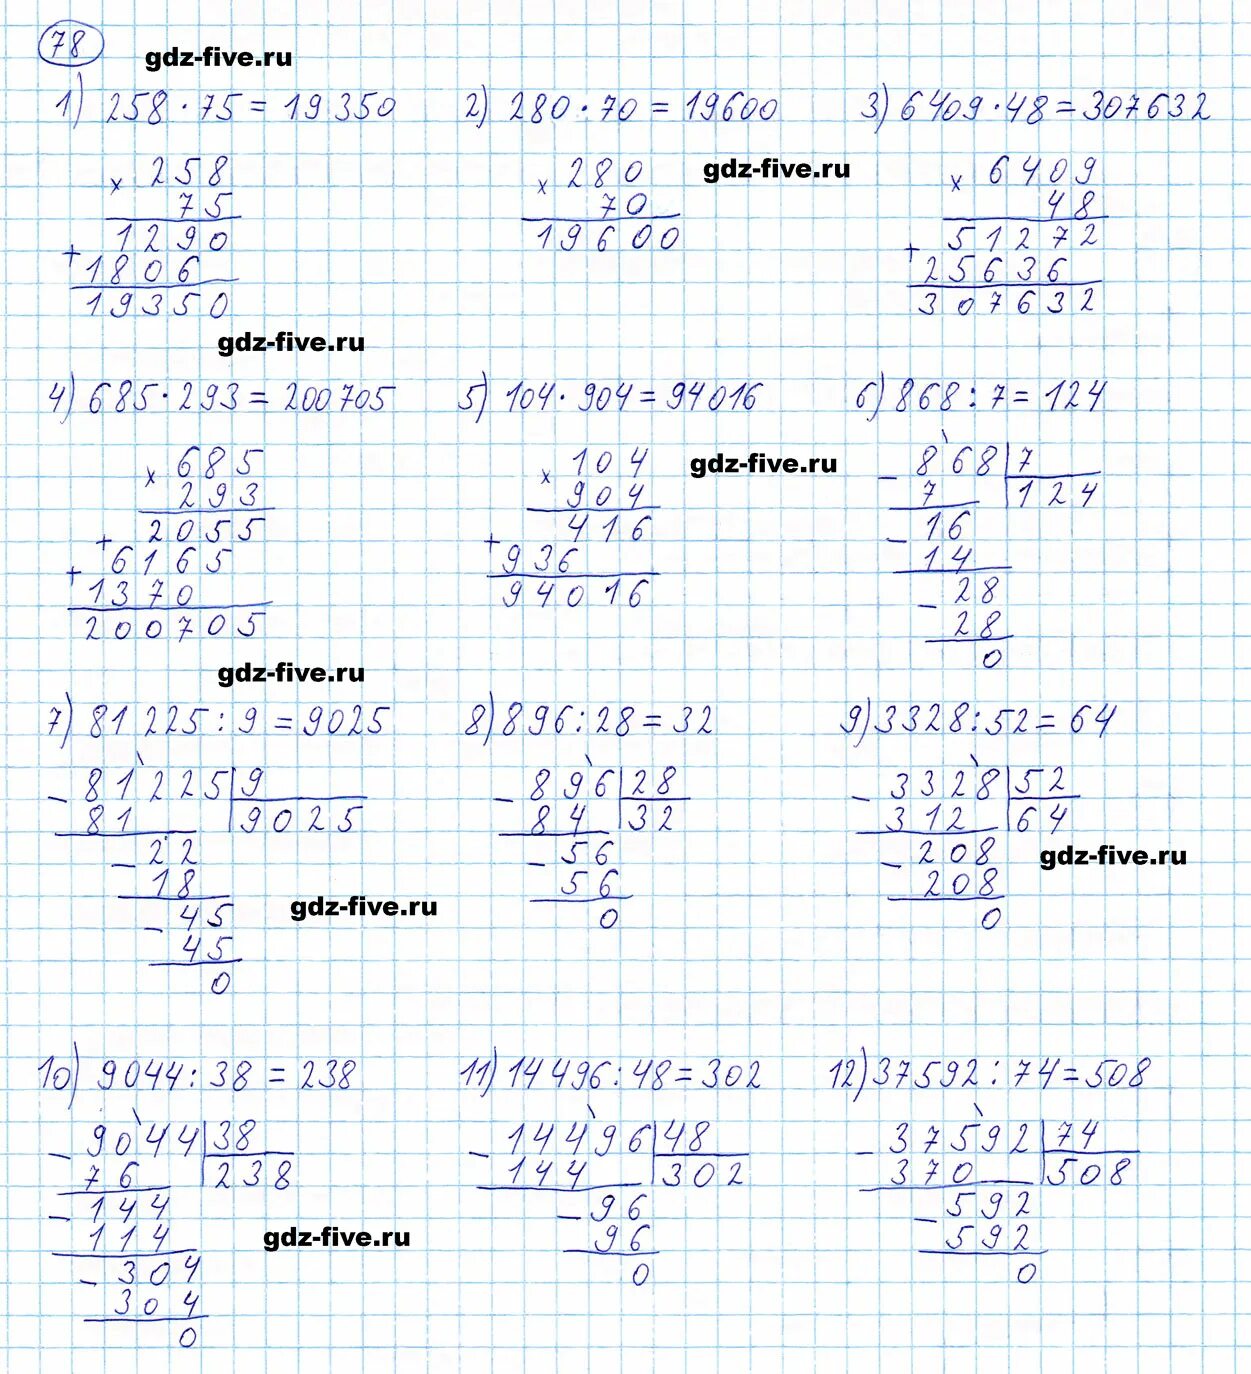 78
gdz-five.ru
1) 258 · 75 = 19 350
× 258
75
1290
+
1806
19350
2) 280 · 70 = 19600
× 280
70
19600
gdz-five.ru
3) 6409 · 48 = 307632
× 6409
48
51272
+
25636
307632
gdz-five.ru
4) 685 · 293 = 200705
× 685
293
2055
+
6165
+
1370
200705
5) 104 · 904 = 94016
× 104
904
416
+
936
94016
gdz-five.ru
6) 868 : 7 = 124
- 868 | 7
7 | 124
- 16
14
- 28
28
0
gdz-five.ru
7) 81 225 : 9 = 9025
- 81225 | 9
81 | 9025
- 22
18
- 45
45
0
gdz-five.ru
8) 896 : 28 = 32
- 896 | 28
84 | 32
- 56
56
0
9) 3328 : 52 = 64
- 3328 | 52
312 | 64
- 208
208
0
gdz-five.ru
10) 9044 : 38 = 238
- 9044 | 38
76 | 238
- 144
114
- 304
304
0
gdz-five.ru
11) 14 496 : 48 = 302
- 14496 | 48
144 | 302
- 96
96
0
12) 37592 : 74 = 508
- 37592 | 74
370 | 508
- 592
592
0